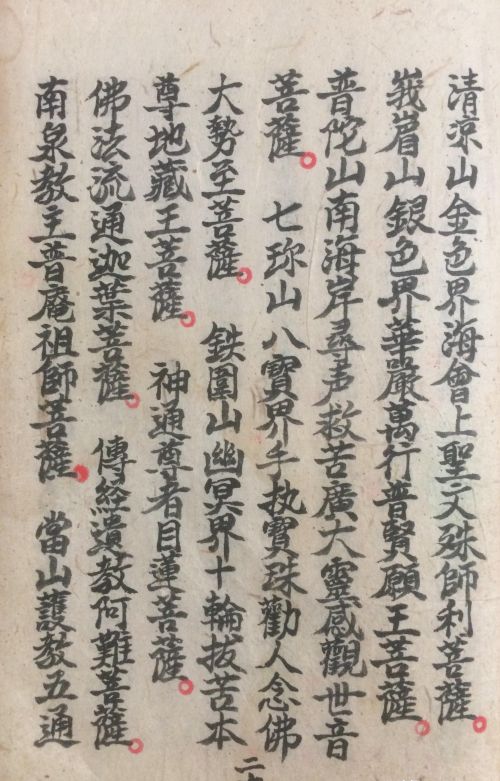 清涼山金色界海會上聖文殊師利菩薩。
峩眉山銀色界華嚴萬行普賢願王菩薩。
普陀山南海岸尋声救苦廣大靈感觀世音
菩薩。 七珎山八寶界手执寳珠勸人念佛
大勢至菩薩。 鉄圍山幽冥界十輪拔苦本
尊地藏王菩薩。 神通尊者目蓮菩薩。
佛法流通迦葉菩薩。 傳經遺教阿難菩薩。
南泉教主普庵祖師菩薩。 當山護教五通
二